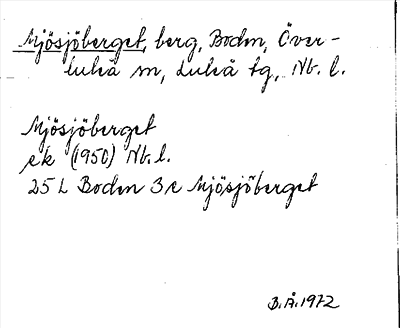 Mjösjöberget, berg, Boden, Över-
luleå sn, Luleå tg, Nb. l.
Mjösjöberget
ek (1950) Nb. l.
25 L Boden 3 c Mjösjöberget
B.Å. 1972